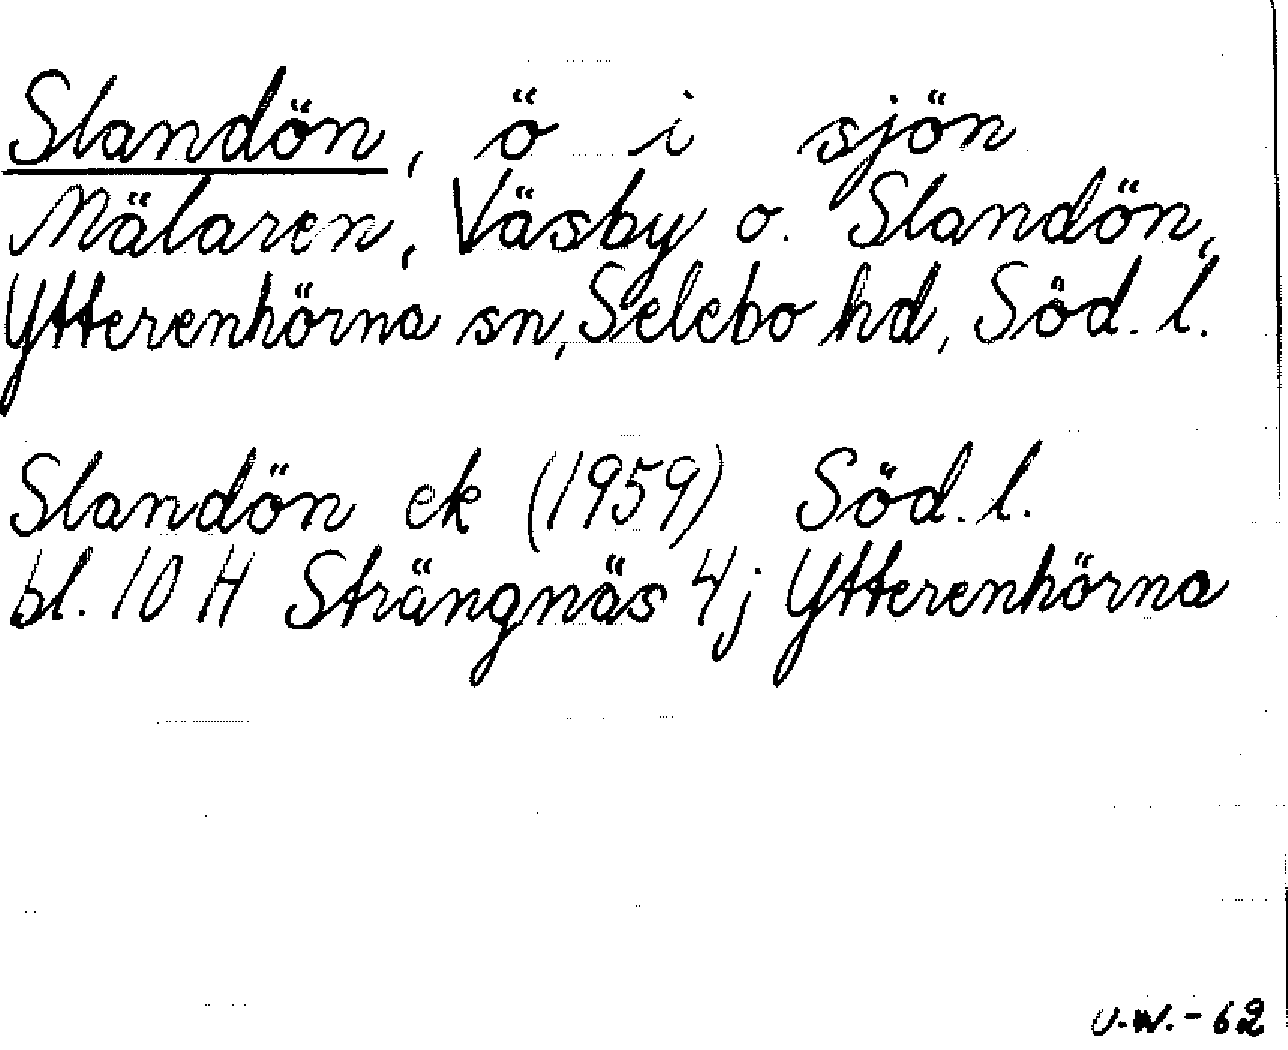 Slandön, ö i sjön
Mälaren, Väsby o. Slandön,
Ytterenhörna sn, Selebo hd, Söd. l.
Slandön ek (1959) Söd. l.
bl. 10 H Strängnäs 4j Ytterenhörna
U.W.-62